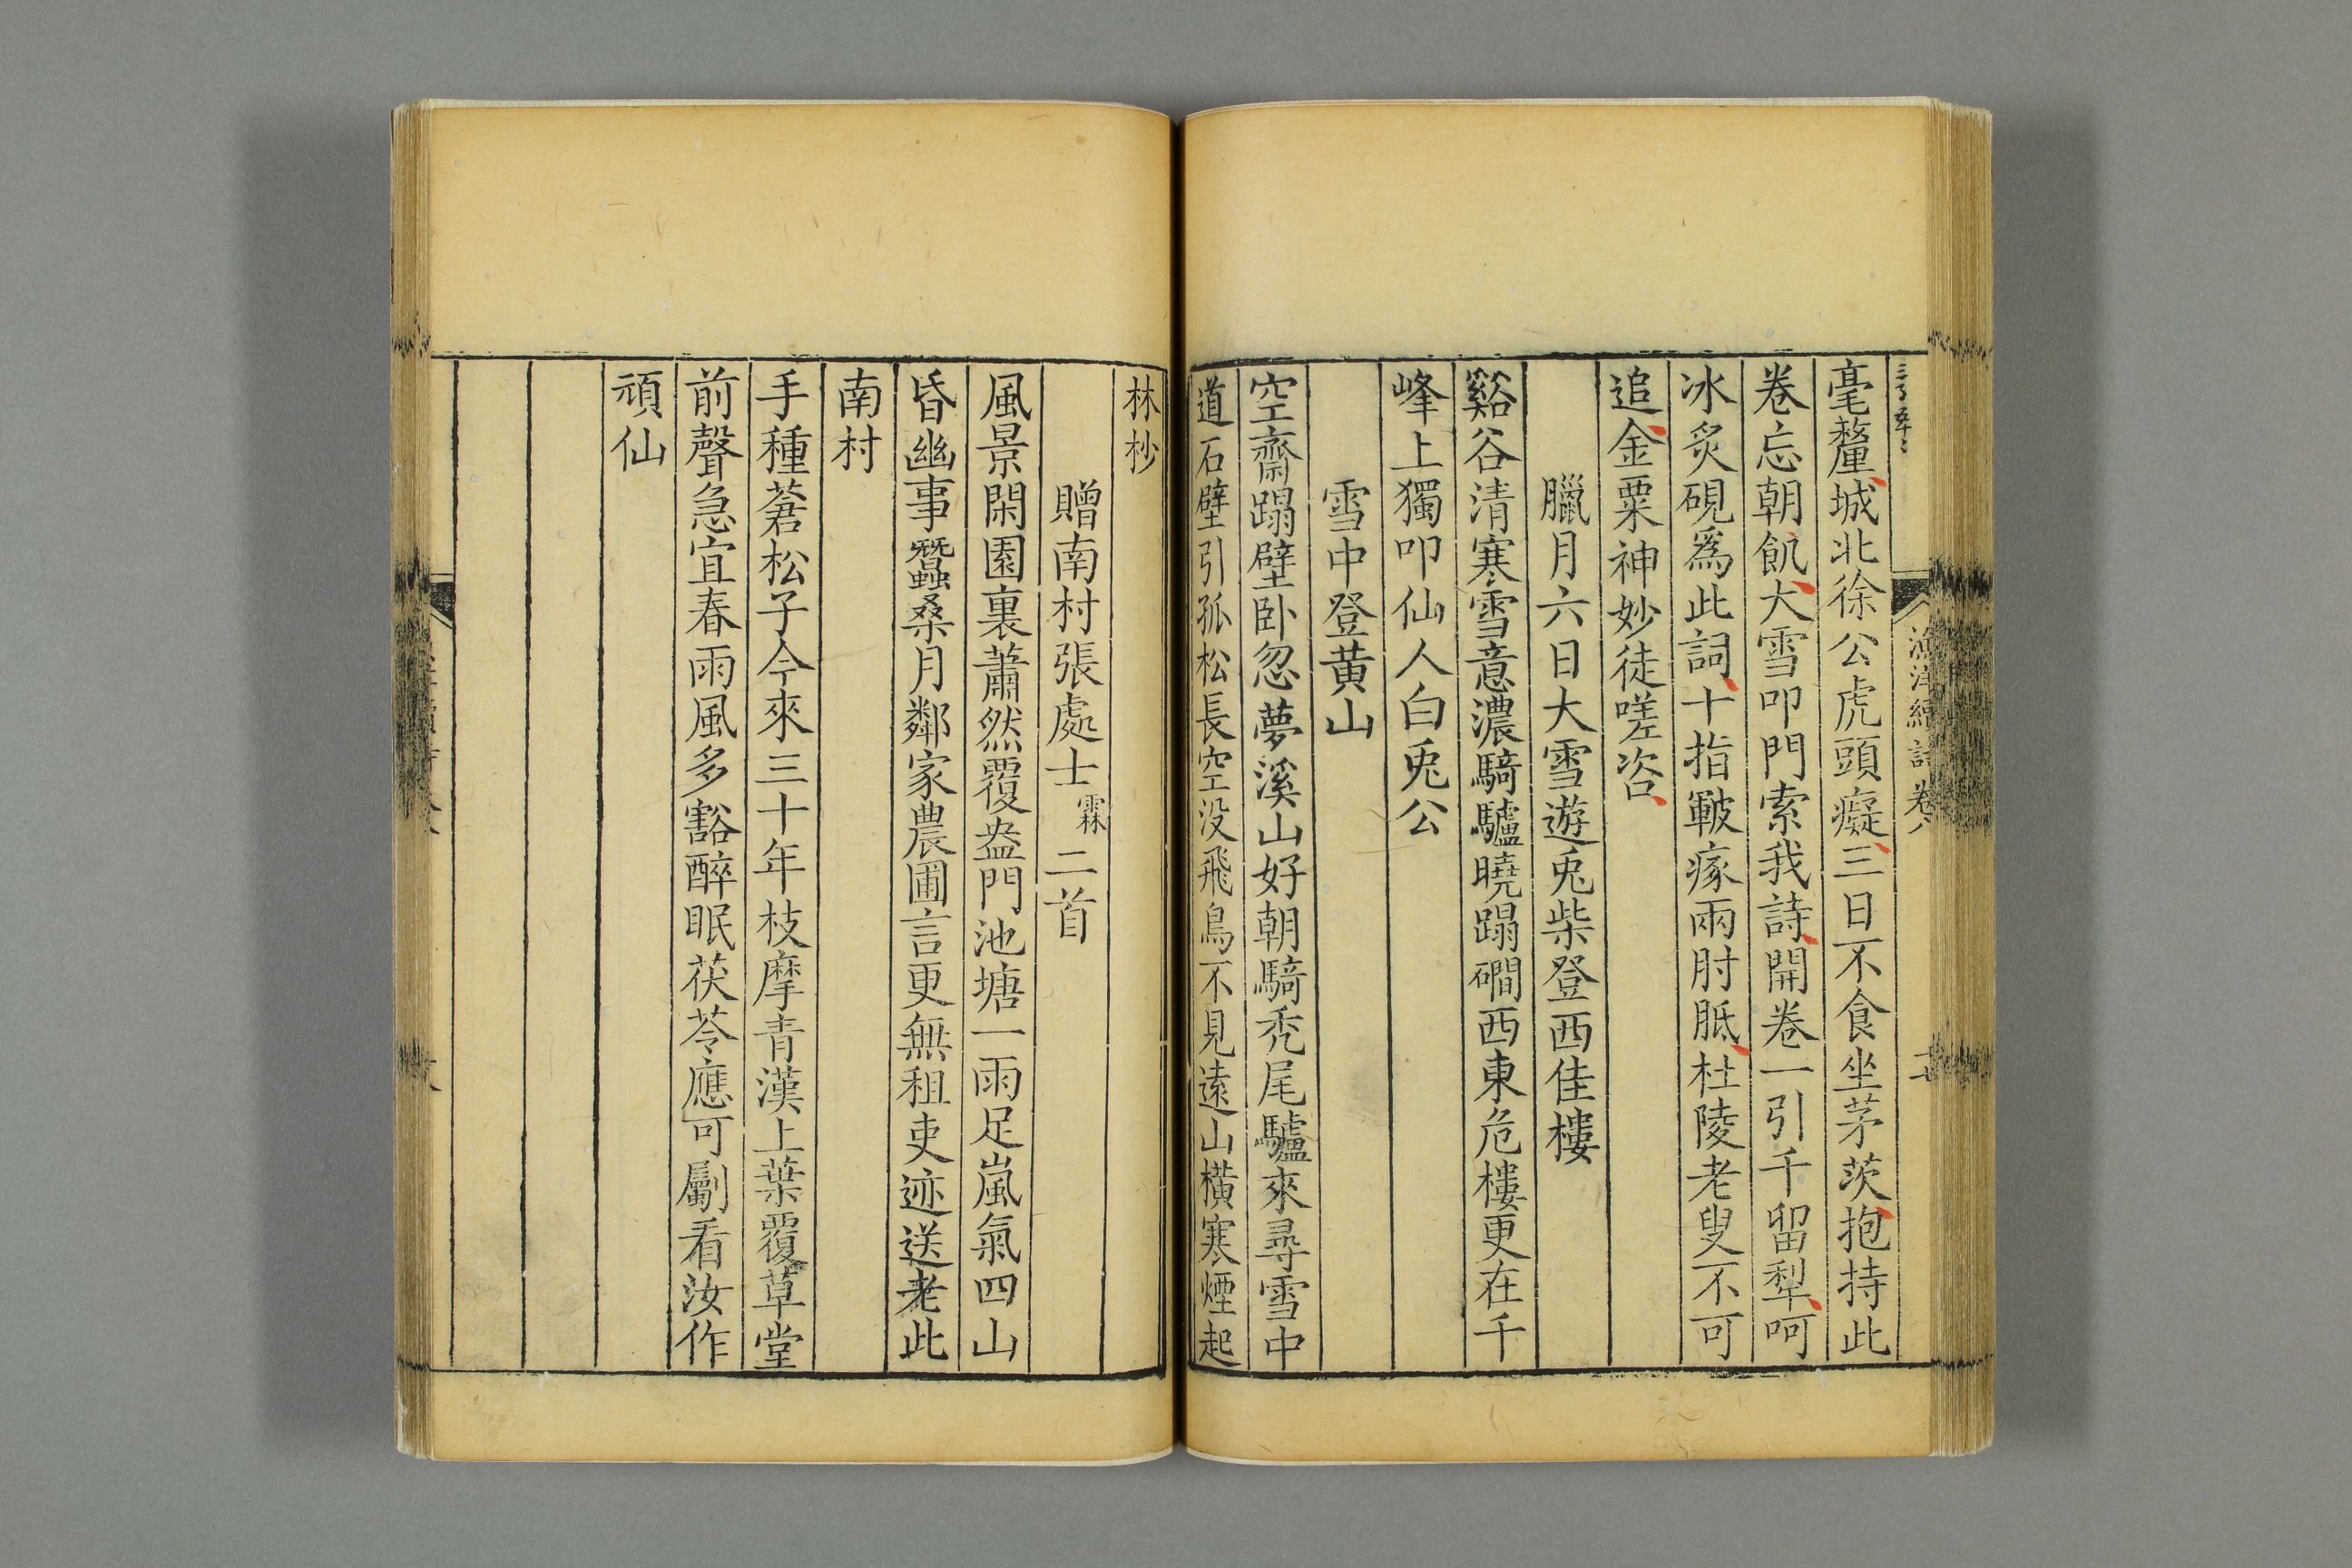 毫釐城北徐公虎頭癡三日不食坐茅茨抱持此
卷忘朝飢大雪叩門索我詩開卷一引千留犁呵
冰炙硯爲此詞十指皸瘃兩肘胝杜陵老叟不可
追金粟神妙徒嗟咨
臘月六日大雪遊兎柴登西佳樓
谿谷清寒雪意濃騎驢曉蹋磵西東危樓更在千
峰上獨叩仙人白兎公
雪中登黄山
空齋蹋壁卧忽夢溪山好朝騎禿尾驢來尋雪中
道石壁引孤松長空没飛鳥不見遠山橫寒煙起
林杪
贈南村張處士霖二首
風景閑園裏蕭然覆盎門池塘一雨足嵐氣四山
昏幽事蠶桑月鄰家農圃言更無租吏迹送老此
南村
手種蒼松子今來三十年枝摩青漢上葉覆草堂
前聲急宜春雨風多豁醉眠茯苓應可劚看汝作
頑仙
漁洋續詩卷八